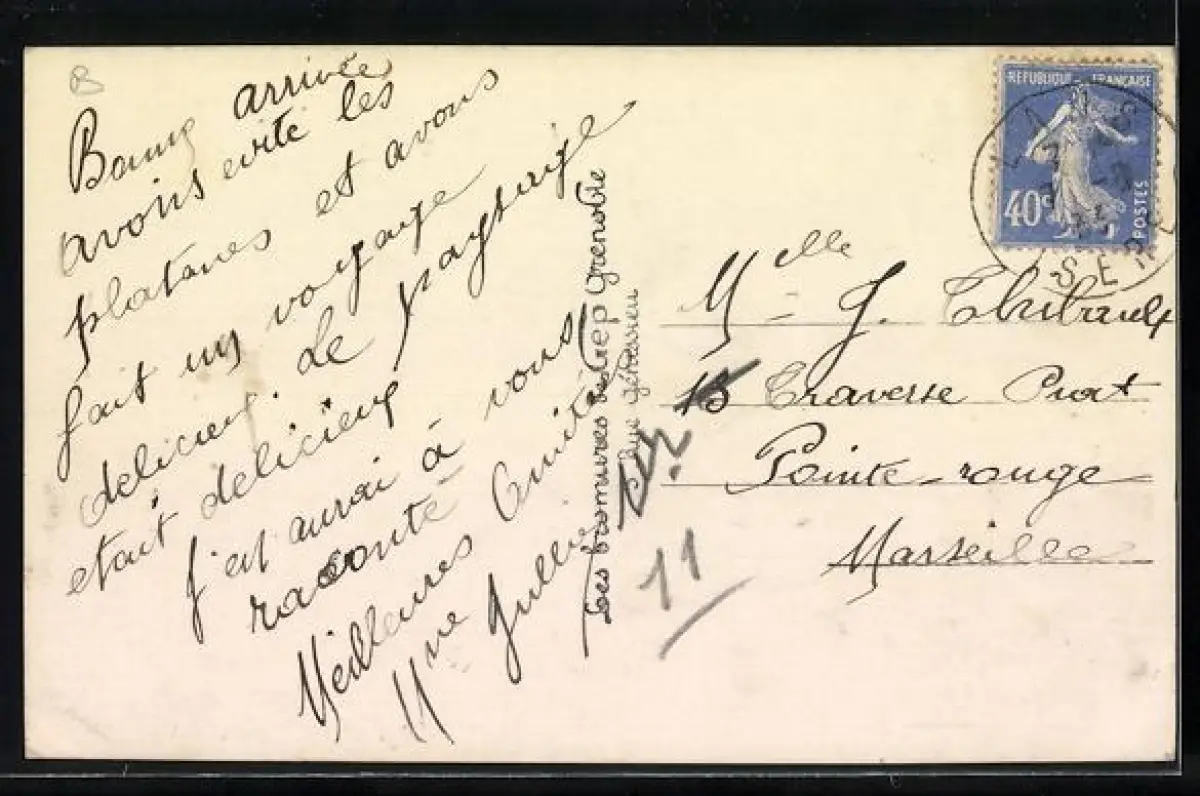 Bonne arrivée
avons evité les
platanes et avons
fait un voyage
delicieux. Le paysage
etait delicieux
j'en aurai à vous
raconté
Meilleures Amitiés
Mme Jullien
Les bromures
Grenoble
RÉPUBLIQUE FRANÇAISE
40c
POSTES
Melle J. Thibault
15 Traverse Prat
Pointe-rouge
Marseille
11